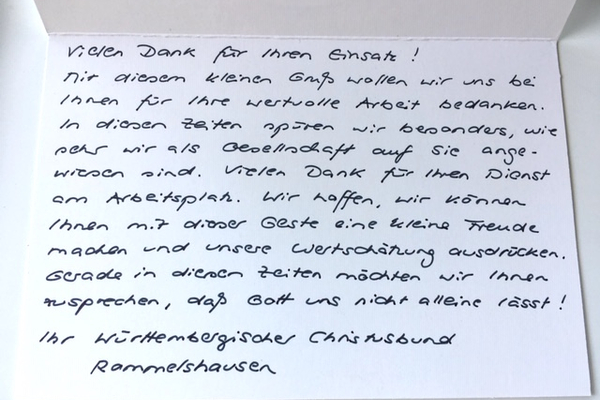 Vielen Dank für Ihren Einsatz!
Mit diesem kleinen Gruß wollen wir uns bei
Ihnen für Ihre wertvolle Arbeit bedanken.
In diesen Zeiten spüren wir besonders, wie
sehr wir als Gesellschaft auf Sie ange-
wiesen sind. Vielen Dank für Ihren Dienst
am Arbeitsplatz. Wir hoffen, wir können
Ihnen mit dieser Geste eine kleine Freude
machen und unsere Wertschätzung ausdrücken.
Gerade in diesen Zeiten möchten wir Ihnen
zusprechen, daß Gott uns nicht alleine lässt!
Ihr Württembergischer Christusbund
Rammelshausen